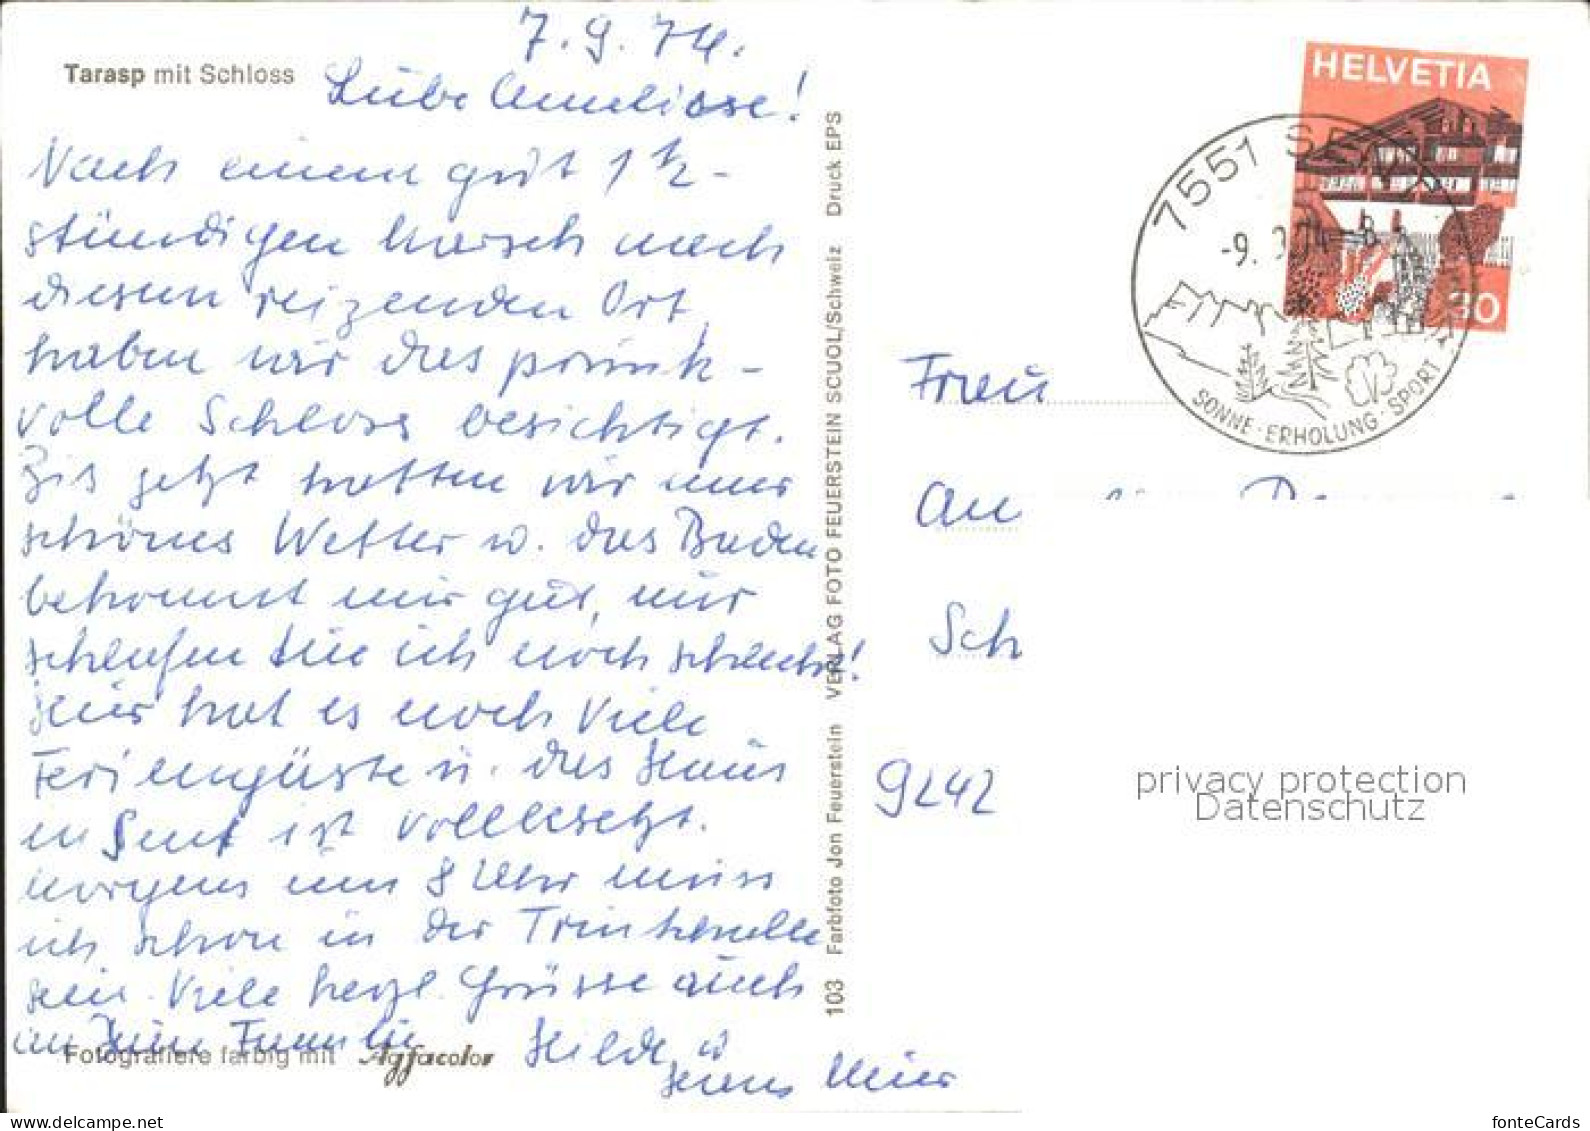 7.9.74.
Tarasp mit Schloss
Liebe Anneliese!
Nach einem gut 1 ½-
stündigen Marsch nach
diesem reizenden Ort,
haben wir das prunk-
volle Schloss besichtigt.
Bis jetzt hatten wir immer
schönes Wetter u. das Baden
bekommt mir gut, nur
schlafen tue ich noch schlecht!
Hier hat es noch viele
Feriengäste u. das Haus
in Sent ist vollbesetzt.
Morgens um 8 Uhr muss
ich schon in der Trinkhalle
sein. Viele herzl. Grüsse auch
an Deine Familie Hilde u
Hans Meier
Fotografiere farbig mit Agfacolor
103 Farbfoto Jon Feuerstein VERLAG FOTO FEUERSTEIN SCUOL/Schweiz Druck EPS
HELVETIA
30
7551
-9. 9.74
SONNE · ERHOLUNG · SPORT
Frau
An
Sch
9242
privacy protection
Datenschutz
fonteCards